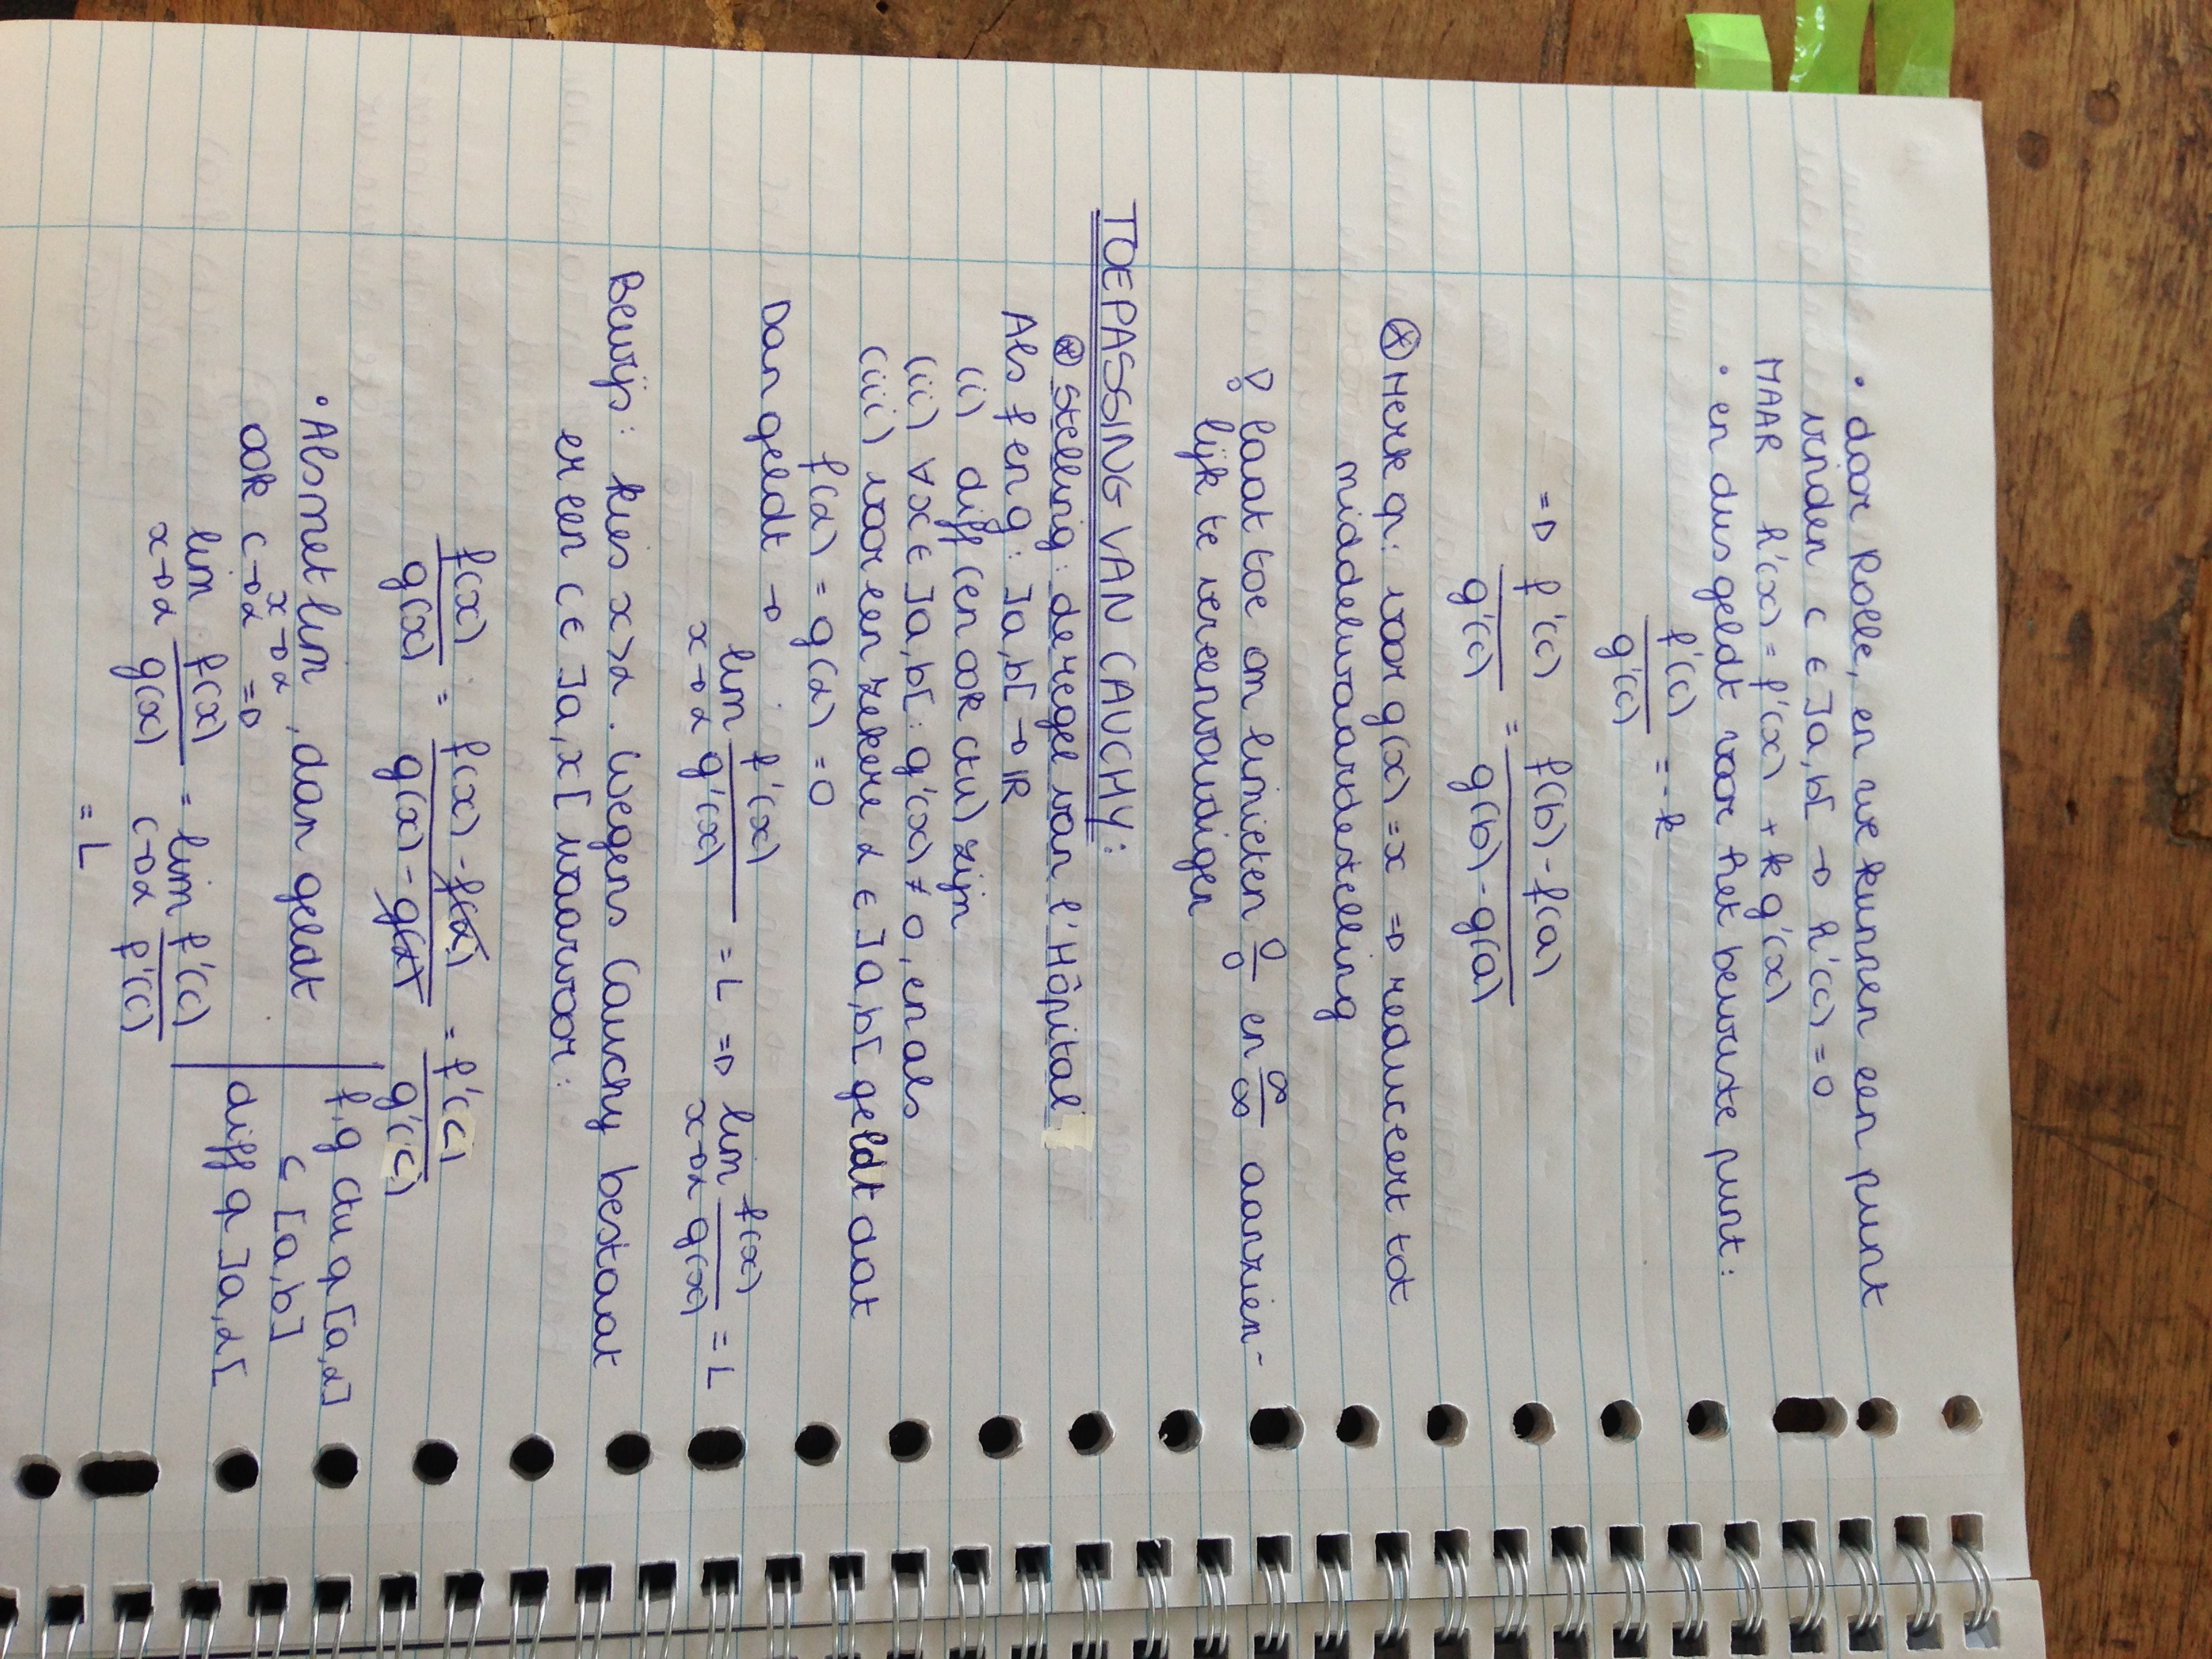 • door Rolle, en we kunnen een punt
vinden c ∈ ]a,b[ → h'(c) = 0
MAAR h'(x) = f'(x) + k g'(x)
• en dus geldt voor het bewuste punt:
f'(c)/g'(c) = -k
=> f'(c)/g'(c) = f(b)-f(a)/g(b)-g(a)
⊛ Merk op: voor g(x) = x => reduceert tot
middelwaardestelling
! laat toe om limieten 0/0 en ∞/∞ aanzien-
lijk te vereenvoudigen
TOEPASSING VAN CAUCHY:
⊛ Stelling: de regel van l'Hôpital
Als f en g: ]a,b[ → ℝ
(i) diff (en ook ctu) zijn
(ii) ∀x ∈ ]a,b[ : g'(x) ≠ 0, en als
(iii) voor een zekere α ∈ ]a,b[ geldt dat
f(α) = g(α) = 0
Dan geldt →
lim x→α f'(x)/g'(x) = L => lim x→α f(x)/g(x) = L
Bewijs: kies x>α. Wegens Cauchy bestaat
er een c ∈ ]a,x[ waarvoor:
f(x)/g(x) = f(x)-f(α)/g(x)-g(α) = f'(c)/g'(c)
• Als met lim x→α, dan geldt
ook c→α =>
f,g ctu op [a,α]
⊂ [a,b]
diff op ]a,α[
lim x→α f(x)/g(x) = lim c→α f'(c)/f'(c)
= L